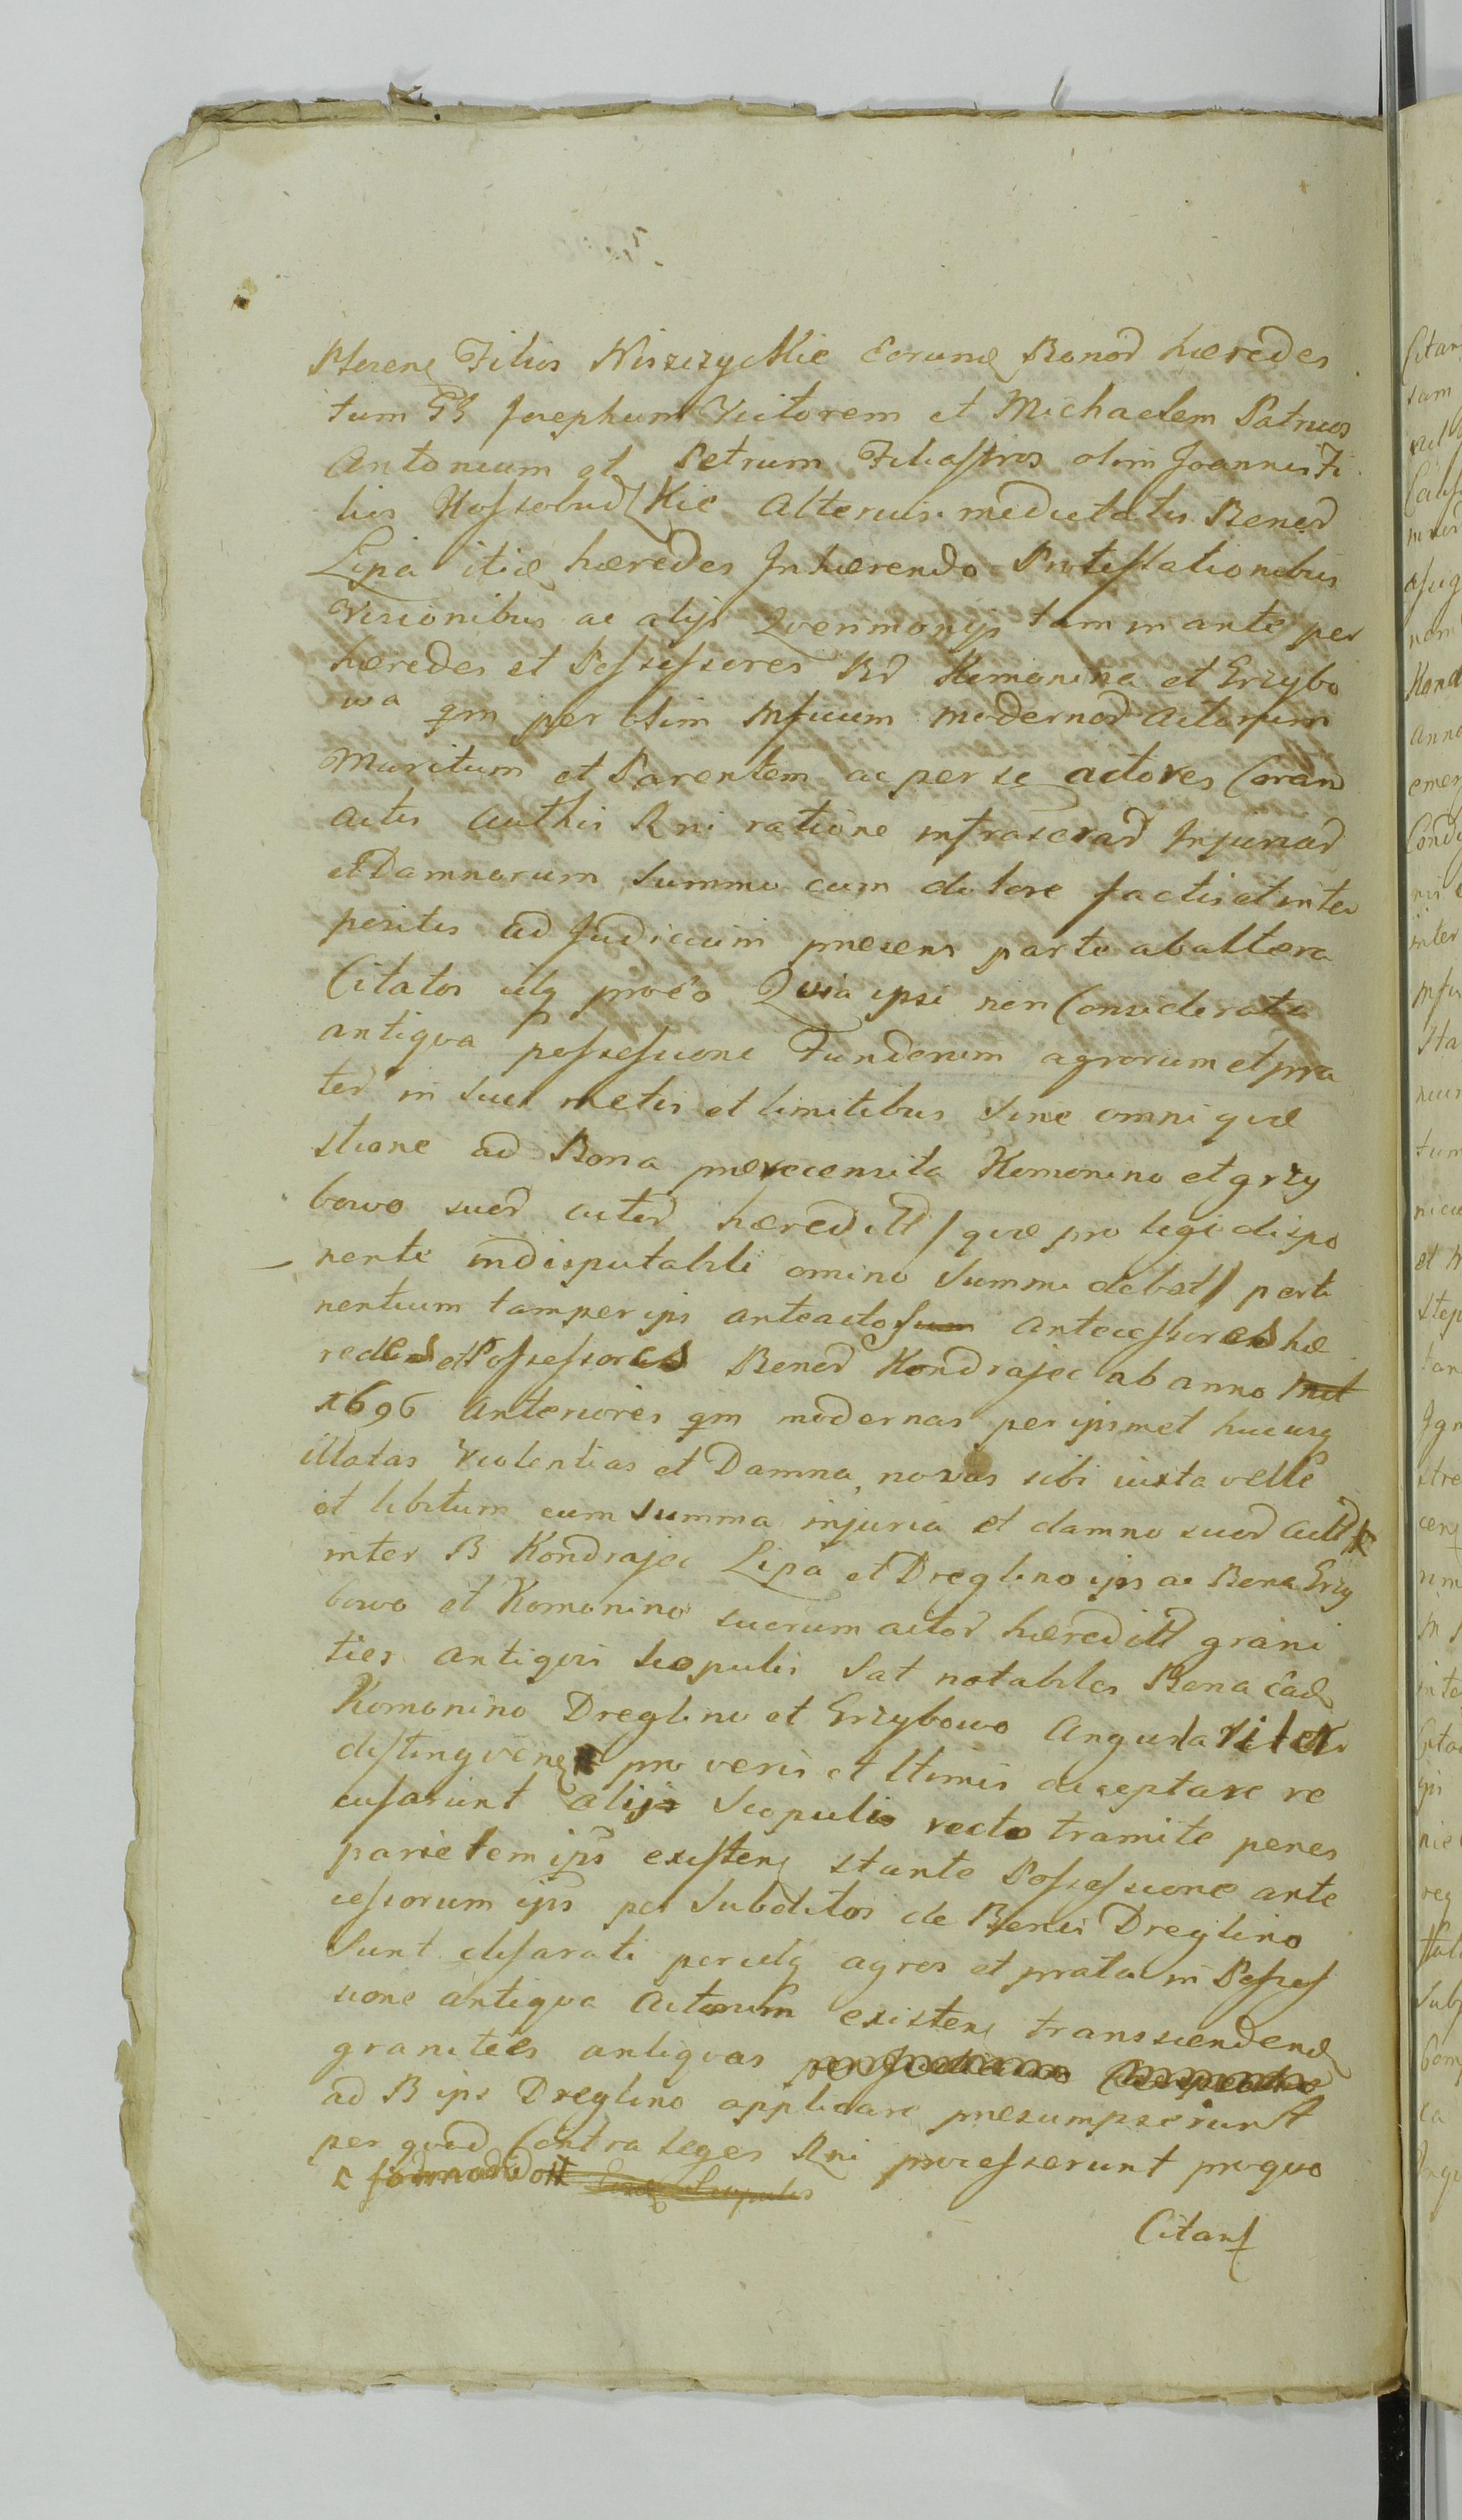 Filios Niszczyckie eorum Bonor hæredes
tum GG Josephum Victorem et Michaelem Patruos
Antonium et Petrum Filiastros olim Joannis Fi
lios Kossobudzkie alterius medietatis Bonor
Lipa itid hæredes Inhærendo Protestationibus
Visionibus ac alijs Qverimonijs tam in ante per
hæredes et Possessores Bd Komonino et Grzybo
wa qm per olim Mficum modernor Actorum
Maritum et Parentem ac per se actores Coran
Actis Authis Rni ratione infrascrar Injuriar
et Damnorum summo cum dolore factis et inter
positis ad Judicium præsens parte ab altera
Citatos idq proeo Quia ipsi non Considerata
antiqva possessione Fundorum agrorum et pra
tor in suis metis et limitibus sine omni qvæ
stione ad Bona prærecensita Komonino et grzy
bowo suor actor hæreditt / qvæ pro lege dispo
nente indisputabili omino summi debet / perti
nentium tam per ips anteacto antecessores hæ
redes et Possessores Bonor Kondrajec ab anno
1696 Anteriores qm modernas per ipsmet hucusq
illatas Violentias et Damna, novas sibi iuxta velle
et libitum cum summa injuria et damno suor
inter B Kondrajec Lipa et Dreglino ips ac Bona Grzy
bowo et Komonino suorum actor hæreditt grani
ties antiqvis scopulis sat notabiles Bona ead
Komonino Dreglino et Grzybowo Angulariter
distingvene pro veris et ltimis acceptare re
cusarunt alijs scopulis recto tramite penes
parietem ips existens stante Possessione ante
cessorum ips per subditos de Bonis Dreglino
sunt disarati peridq agros et prata in Posses
sione antiqva Actorum existens transcendend
granities antiqvas
ad B ips Dreglino applicare præsumpserunt
per qvod Contra leges Rni processerunt proqvo
Scopulis
Citant